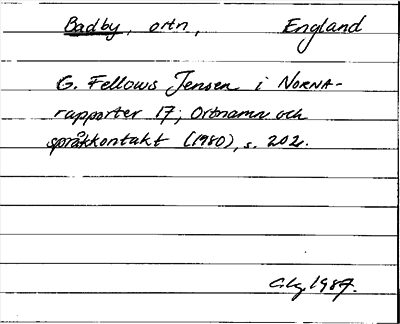 Badby, ortn, England
G. Fellows Jensen i NORNA-
rapporter 17; Ortnamn och
språkkontakt (1980), s. 202.
1984.